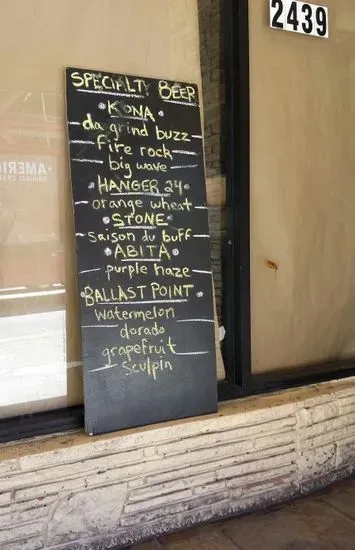 2439
SPECIALTY BEER
KONA
da grind buzz
Fire rock
big wave
HANGER 24
orange wheat
STONE
saison du buff
ABITA
purple haze
BALLAST POINT
watermelon
dorado
grapefruit
sculpin